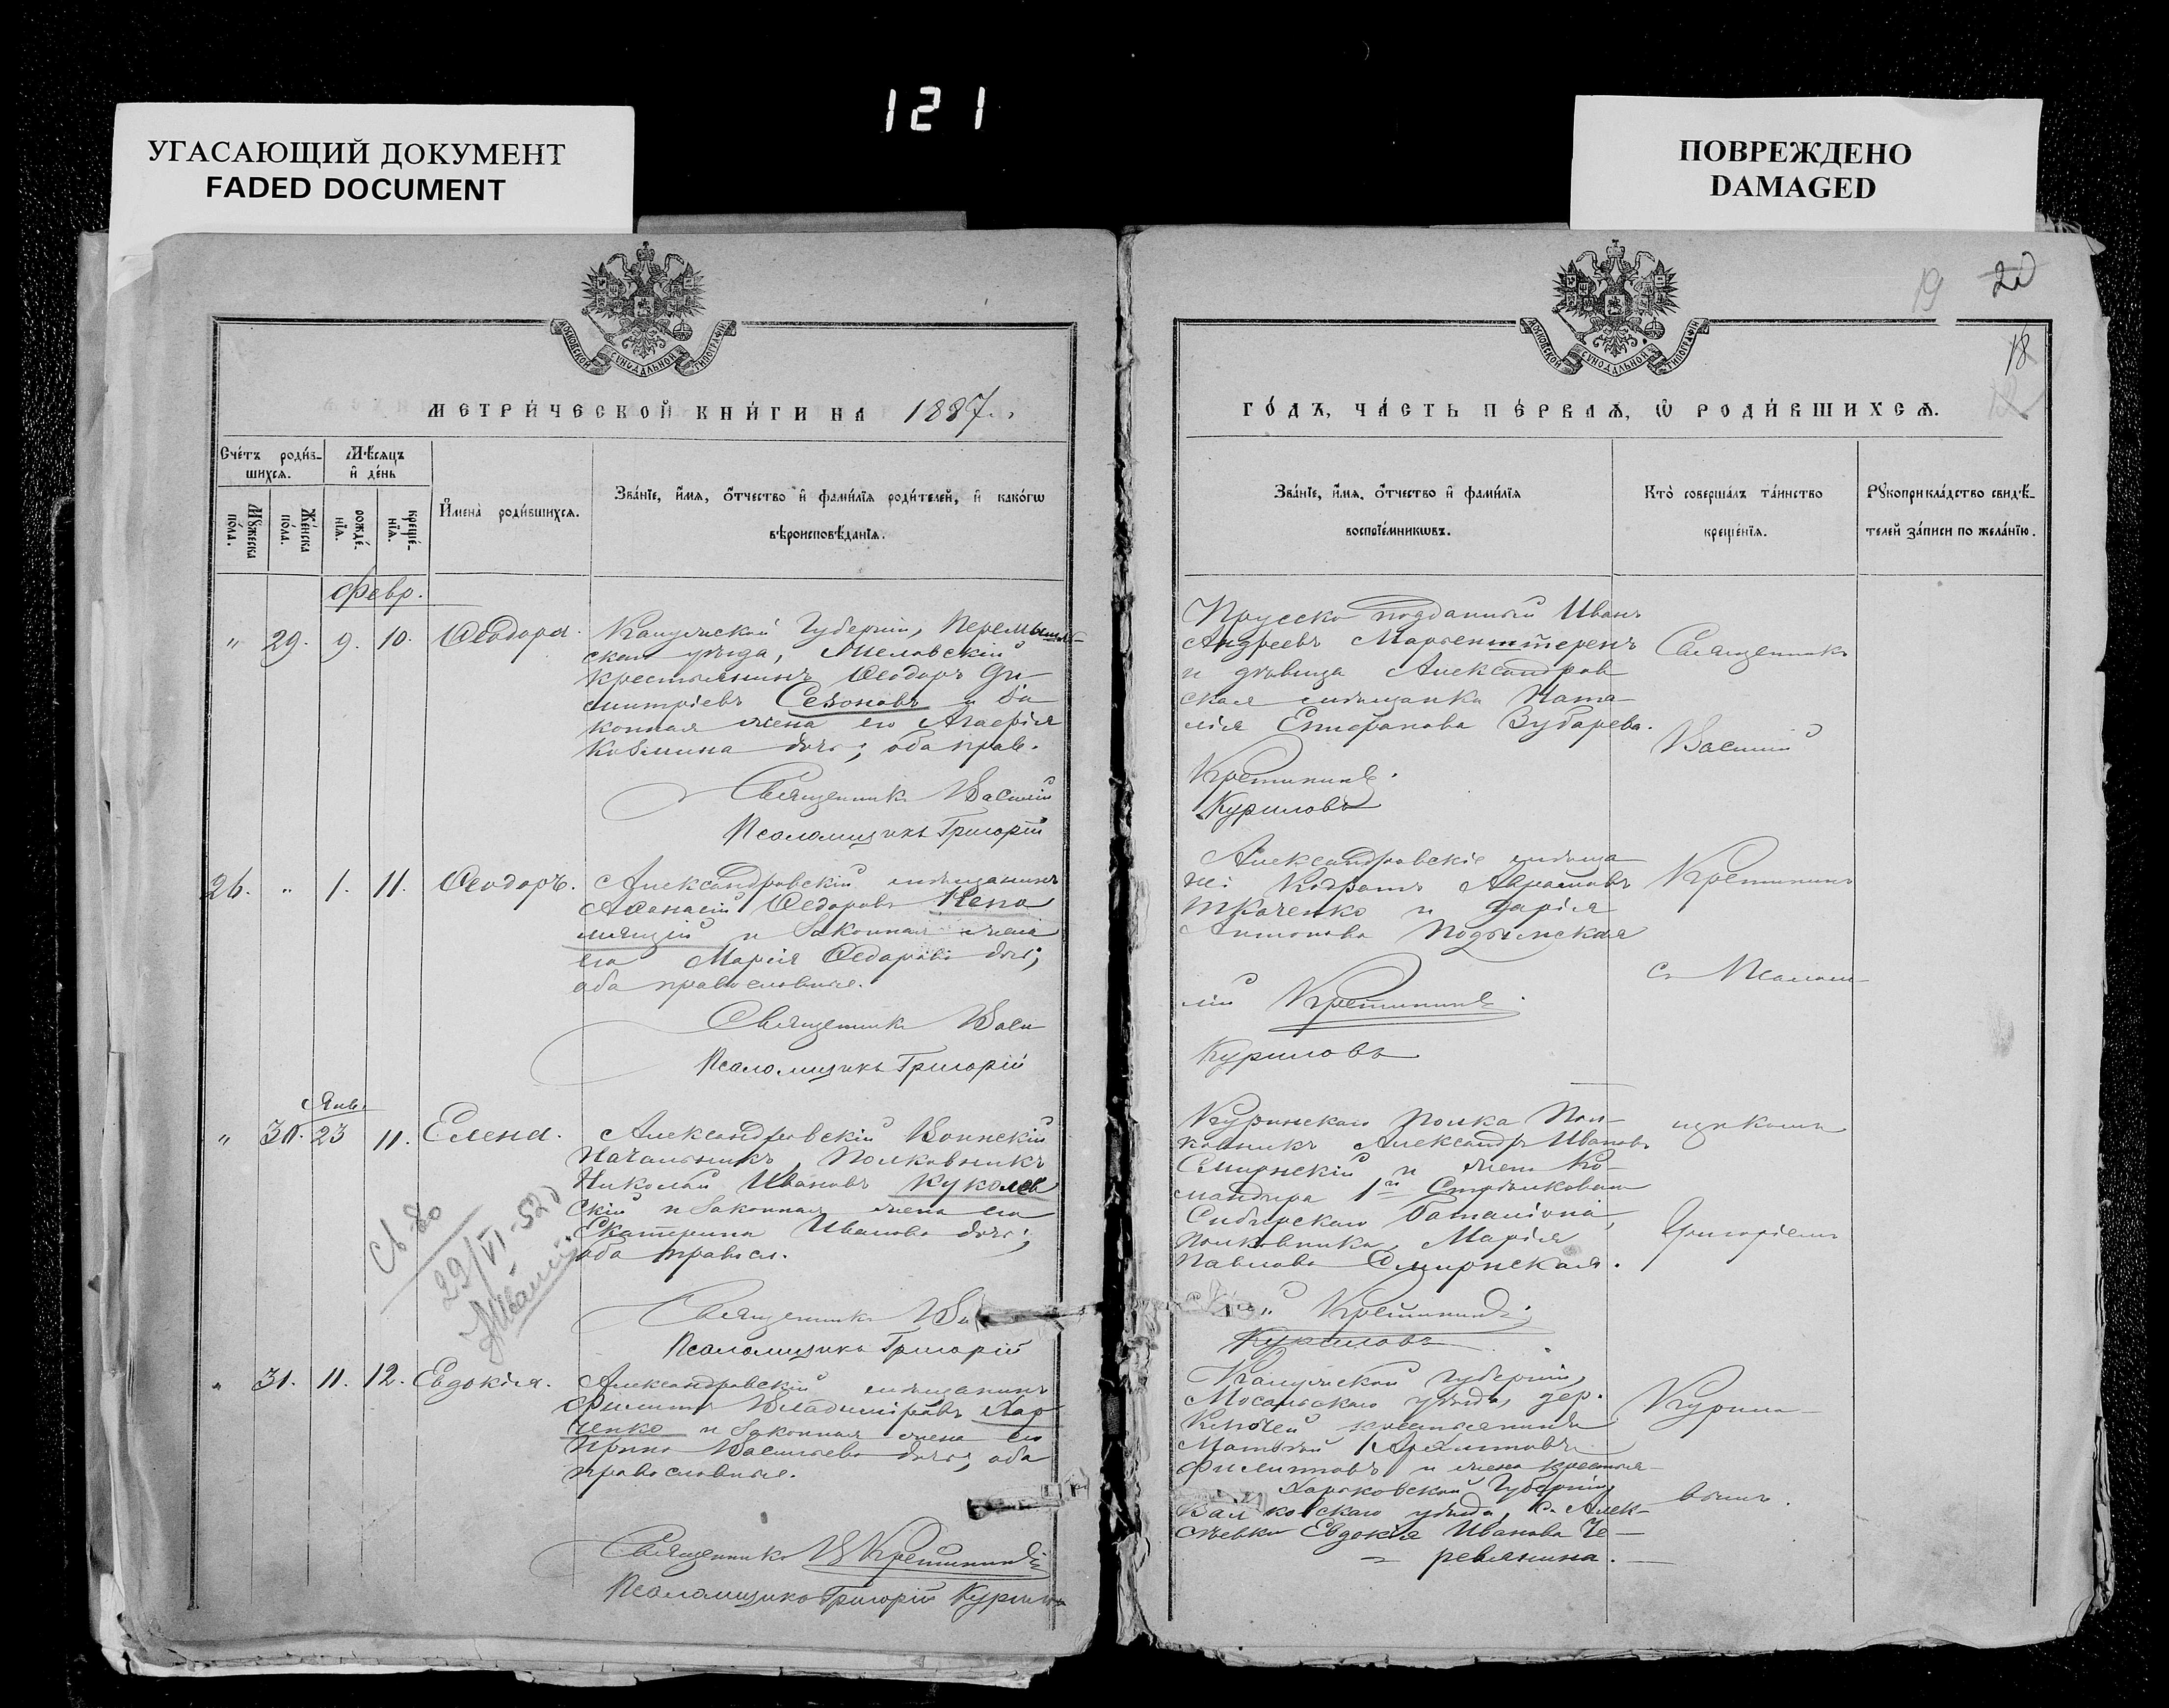 121
УГАСАЮЩИЙ ДОКУМЕНТ
FADED DOCUMENT
ПОВРЕЖДЕНО
DAMAGED
МОСКОВСКОЙ СѴНОДАЛЬНОЙ ТИПОГРАФІИ
МЕТРИ́ЧЕСКОЙ КНИ́ГИ НА 1887.
Сче́тъ роди́в-
шихсѧ.
Мѣсѧцъ
и҆ де́нь
Мꙋ́жеска
по́ла.
Же́нска
по́ла.
рожде́-
нїѧ.
креще́-
нїѧ.
И҆мена̀ роди́вшихсѧ.
Зва́нїе, и҆́мѧ, ѻ҆́тчество и҆ фами́лїѧ роди́телей, и҆ како́гѡ
вѣроисповѣ́данїѧ.
Февр.
" 29. 9. 10. Ѳеодора.
Калужской Губерніи, Перемышль-
скаго уѣзда,
крестьянинъ Ѳеодоръ Ди-
митріевъ Сезоновъ и за
конная жена его Агаѳія
Козмина дочь; оба прав.
Священникъ Василій
Псаломщикъ Григорій
26. " 1. 11. Ѳеодоръ.
Александровскій мѣщанинъ
Аѳанасій Ѳедоровъ Непо
мнящій и законная жена
его Марія Ѳедорова дочь;
оба православные.
Священникъ Васи
Псаломщикъ Григорій
Янв.
" 30. 23 11. Елена.
Александровскій Воинскій
Начальникъ, Полковникъ
Николай Ивановъ Куколев
скій и законная жена его
Екатерина Иванова дочь;
оба правосл.
Св-во
22/VI-52
Священникъ Ва
Псаломщикъ Григорій
" 31. 11. 12. Евдокія.
Александровскій мѣщанинъ
Филиппъ Владиміровъ Хар
ченко и законная жена его
Ирина Васильева дочь; оба
православные.
Священникъ В Кретининъ
Псаломщикъ Григорій Куриловъ
19 20
18
МОСКОВСКОЙ СѴНОДАЛЬНОЙ ТИПОГРАФІИ
ГО́ДЪ, ЧА́СТЬ ПЕ́РВАѦ, Ѡ҆ РОДИ́ВШИХСѦ.
Зва́нїе, и҆́мѧ, ѻ҆́тчество и҆ фами́лїѧ
воспрїе́мникѡвъ.
Кто̀ соверша́лъ та́инство
креще́нїѧ.
Рꙋкоприкла́дство свидѣ́-
телей за́писи по жела́нїю.
Прусско подданный Иванъ
Андреевъ Марьенштеренъ
и дѣвица Александров
ская мѣщанка Ната-
лія Епифанова Зубарева.
Священникъ
Василій
Кретининъ.
Куриловъ
Александровскіе мѣща
не: Кодратъ Авраамовъ
Ткаченко и Дарія
Антонова Подъ
Кретининъ
съ Псалом-
лій Кретининъ.
Куриловъ
Куринскаго Полка Пол-
ковникъ Александръ Ивановъ
Смирнскій и жена Ко-
мандира 1го Стрѣлковаго
Сибирскаго Баталіона,
Полковника, Марія
Павлова Смирнская.
щикомъ
Григоріемъ
Кретининъ;
Куриловъ
Калужской Губерніи,
Мосальскаго уѣзда, дер.
Ключей крестьянинъ
Матвѣй Архиповъ
Филипповъ и жена крестья-
Харьковской Губерніи,
Валковскаго уѣзда, с. Алек-
сѣевки Евдокія Иванова Че-
ревянина.
Курило-
вымъ.